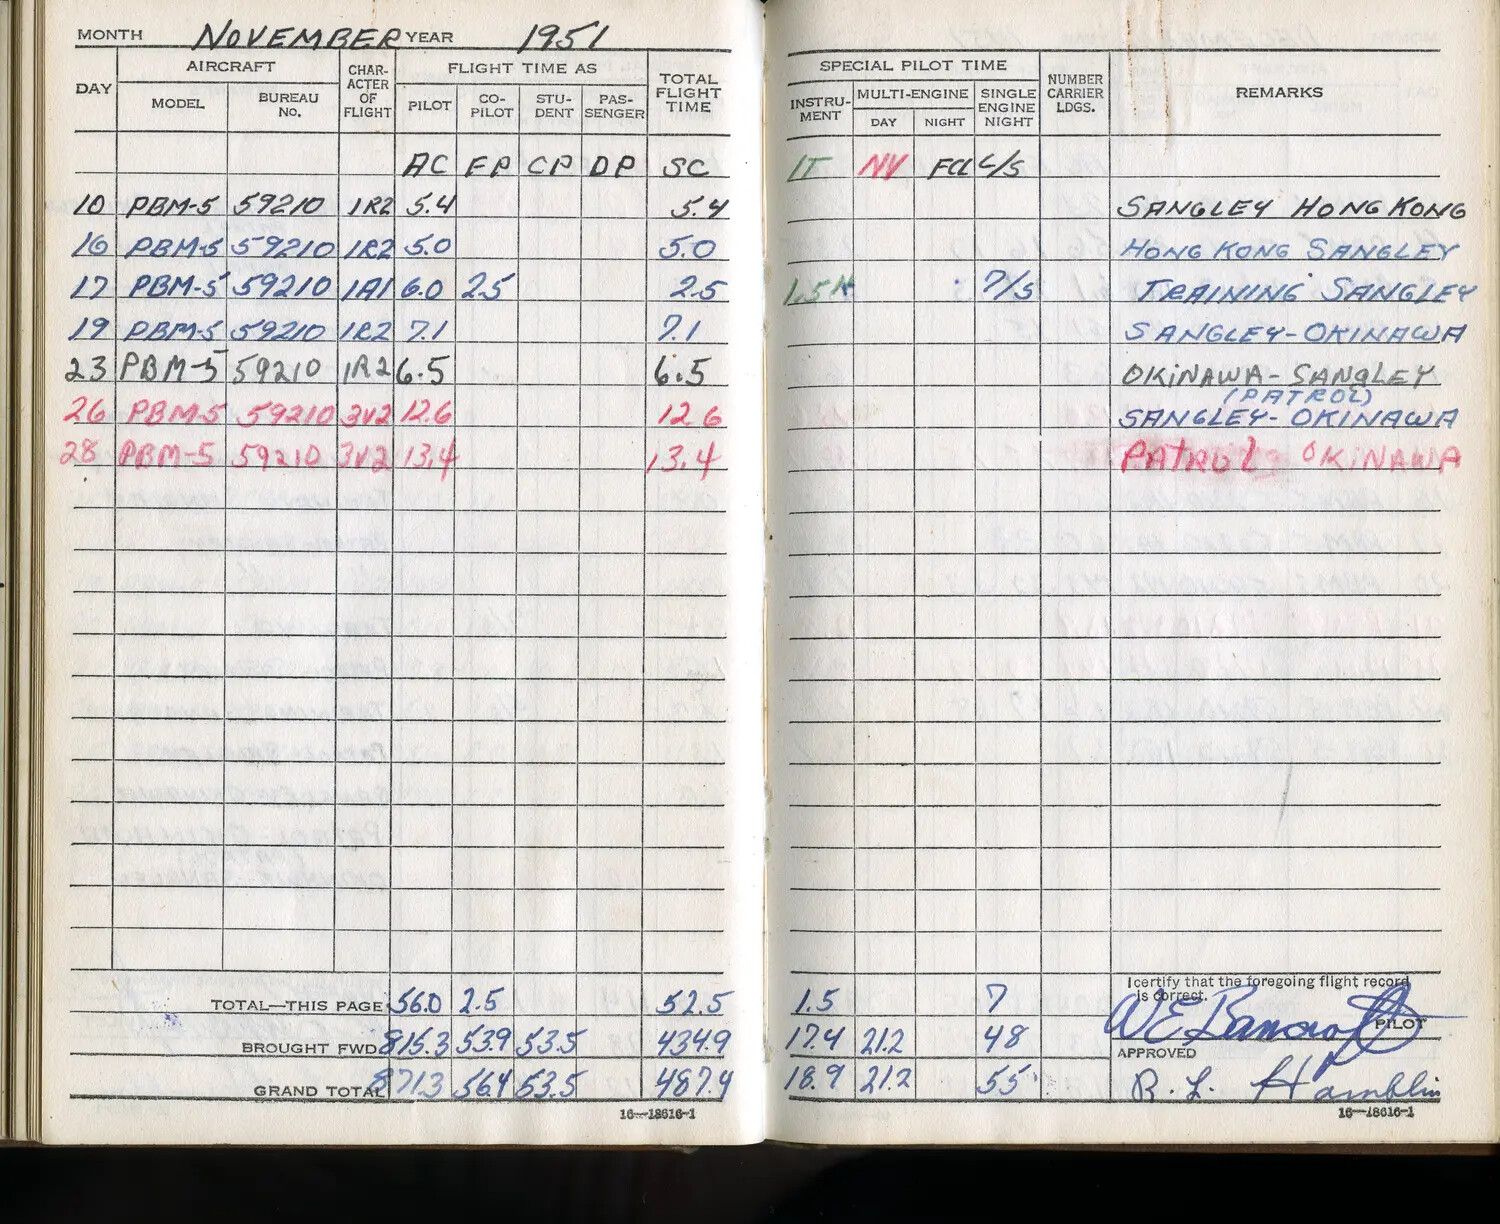 MONTH NOVEMBER YEAR 1951
DAY AIRCRAFT CHAR-ACTER OF FLIGHT FLIGHT TIME AS TOTAL FLIGHT TIME SPECIAL PILOT TIME NUMBER CARRIER LDGS. REMARKS
MODEL BUREAU NO. PILOT CO-PILOT STU-DENT PAS-SENGER INSTRU-MENT MULTI-ENGINE SINGLE ENGINE NIGHT
DAY NIGHT
AC FP CP DP SC IT NV FCL L/S
10 PBM-5 59210 1R2 5.4 5.4 SANGLEY HONG KONG
16 PBM-5 59210 1R2 5.0 5.0 HONG KONG SANGLEY
17 PBM-5 59210 1A1 6.0 2.5 2.5 1.5 7/5 TRAINING SANGLEY
19 PBM-5 59210 1R2 7.1 7.1 SANGLEY-OKINAWA
23 PBM-5 59210 1R2 6.5 6.5 OKINAWA-SANGLEY
(PATROL)
26 PBM-5 59210 3V2 12.6 12.6 SANGLEY-OKINAWA
28 PBM-5 59210 3V2 13.4 13.4 PATROL OKINAWA
TOTAL—THIS PAGE 56.0 2.5 52.5 1.5 7
BROUGHT FWD 815.3 53.9 53.5 434.9 17.4 21.2 48
GRAND TOTAL 871.3 56.4 53.5 487.4 18.9 21.2 55
I certify that the foregoing flight record is correct.
W E Bancroft PILOT
APPROVED
R. L. Hamblin
16—18616-1 16—18616-1